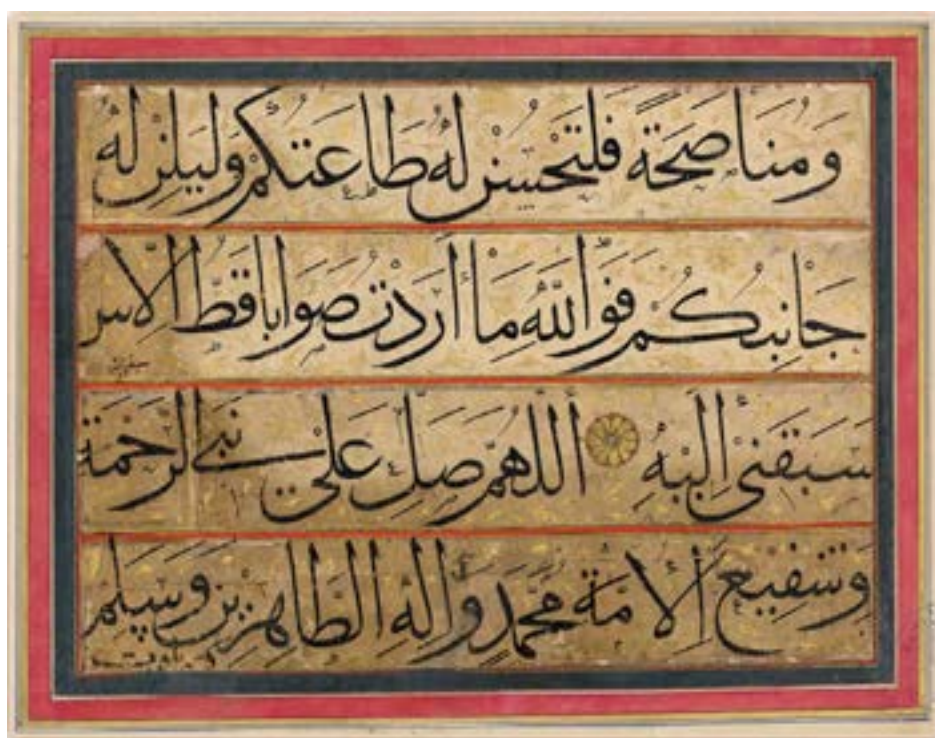 وَمُنَاصَحَةً فَلْتَحْسُنْ لَهُ طَاعَتُكُمْ وَلْيَلِنْ لَهُ
جَانِبُكُمْ فَوَاللّٰهِ مَا أَرَدْتُ صَوَابًا قَطُّ إِلَّا
سَبَقَنِى إِلَيْهِ اَللّٰهُمَّ صَلِّ عَلٰى نَبِىِّ الرَّحْمَةِ
وَشَفِيعِ الْأُمَّةِ مُحَمَّدٍ وَاٰلِهِ الطَّاهِرِينَ وَسَلِّمْ